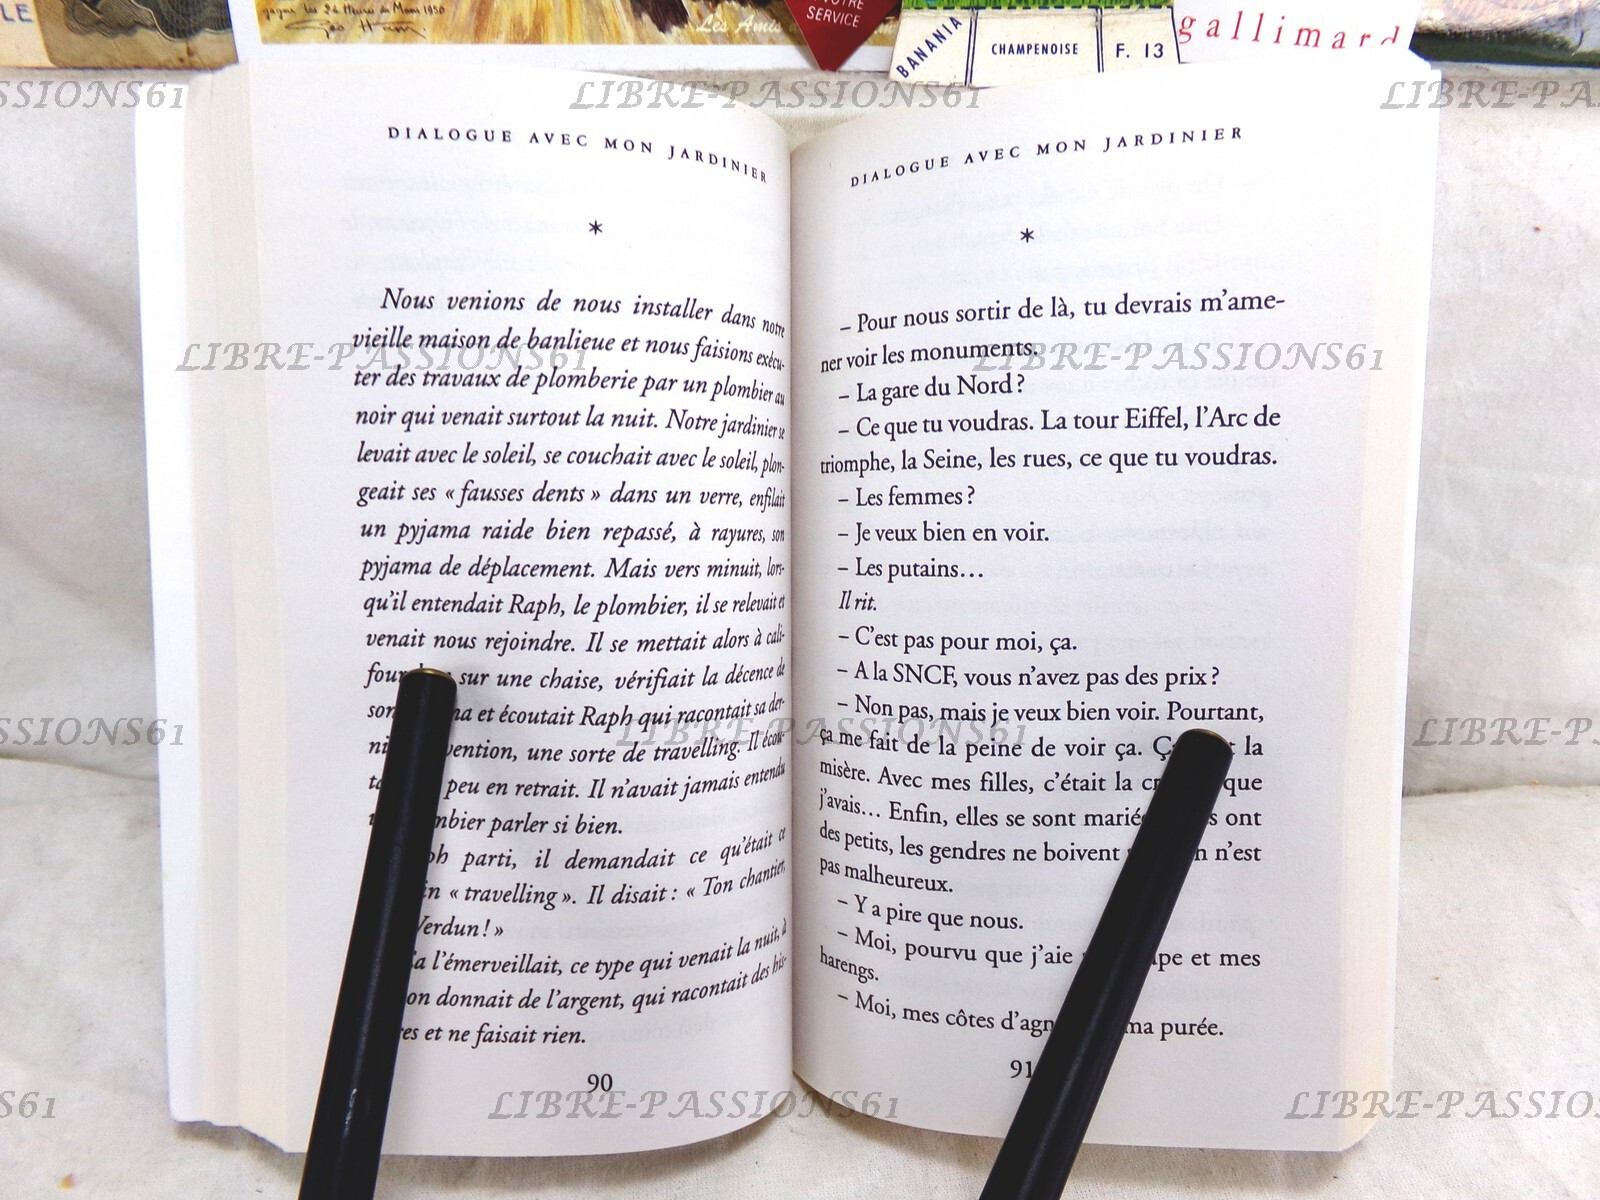 LE
gagne les 24 Heures du Mans 1950
Geo Ham
Les Amis
VOTRE
SERVICE
BANANIA
CHAMPENOISE
F. 13
gallimard
DIALOGUE AVEC MON JARDINIER
*
Nous venions de nous installer dans notre
vieille maison de banlieue et nous faisions exécu-
ter des travaux de plomberie par un plombier au
noir qui venait surtout la nuit. Notre jardinier se
levait avec le soleil, se couchait avec le soleil, plon-
geait ses « fausses dents » dans un verre, enfilait
un pyjama raide bien repassé, à rayures, son
pyjama de déplacement. Mais vers minuit, lors-
qu'il entendait Raph, le plombier, il se relevait et
venait nous rejoindre. Il se mettait alors à cali-
four sur une chaise, vérifiait la décence de
son et écoutait Raph qui racontait sa der-
une sorte de travelling. Il écou-
peu en retrait. Il n'avait jamais entendu
parler si bien.
parti, il demandait ce qu'était ce
« travelling ». Il disait : « Ton chantier,
Verdun ! »
l'émerveillait, ce type qui venait la nuit, à
on donnait de l'argent, qui racontait des his-
res et ne faisait rien.
90
DIALOGUE AVEC MON JARDINIER
*
– Pour nous sortir de là, tu devrais m'ame-
ner voir les monuments.
– La gare du Nord ?
– Ce que tu voudras. La tour Eiffel, l'Arc de
triomphe, la Seine, les rues, ce que tu voudras.
– Les femmes ?
– Je veux bien en voir.
– Les putains...
Il rit.
– C'est pas pour moi, ça.
– A la SNCF, vous n'avez pas des prix ?
– Non pas, mais je veux bien voir. Pourtant,
ça me fait de la peine de voir ça. la
misère. Avec mes filles, c'était la que
j'avais... Enfin, elles se sont mariées ont
des petits, les gendres ne boivent n'est
pas malheureux.
– Y a pire que nous.
– Moi, pourvu que j'aie et mes
harengs.
– Moi, mes côtes d'agn ma purée.
91
LIBRE-PASSIONS61